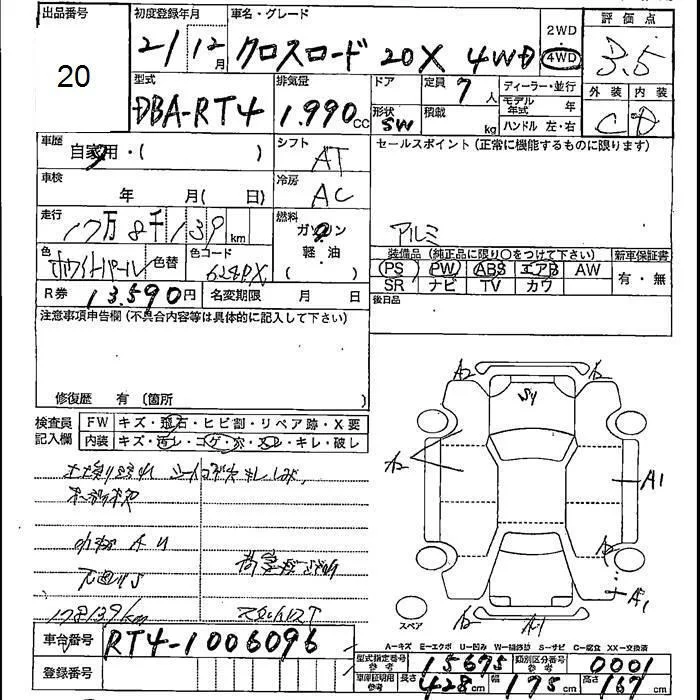 出品番号 初度登録年月 車名・グレード 2WD 評価点
20 21/12月 クロスロード 20X 4WD 4WD 3.5
型式 排気量 ドア 定員 ディーラー・並行 外装 内装
DBA-RT4 1.990cc 7人 モデル年式 年 C D
形状 SW 積載 kg ハンドル 左・右
車歴 自家用・( ) シフト AT セールスポイント(正常に機能するものに限ります)
車検 年 月( 日) 冷房 AC
走行 17万8千139km 燃料 ガソリン アルミ
色 ホワイトパール 色替 色コード 624PX 軽・油 ( )
装備品(純正品に限り○をつけて下さい) 新車保証書
PS PW ABS エアB AW 有・無
SR ナビ TV カワ
R券 13.590円 名変期限 月 日 後日品
注意事項申告欄(不具合内容等は具体的に記入して下さい)
修復歴 有(箇所 )
検査員記入欄 FW キズ・飛石・ヒビ割・リペア跡・X要
内装 キズ・汚レ・コゲ・穴・スレ・キレ・破レ
178139km
A2 A2
W4
A2
A1
A2
A1
スペア A2 A1
A=キズ E=エクボ U=凹み W=補修跡 S=サビ C=腐食 XX=交換済
車台番号 RT4-1006096
型式指定番号 参考 15675 類別区分番号 参考 0001
登録番号 車庫証明用 参考 長さ 428cm 幅 175cm 高さ 167cm